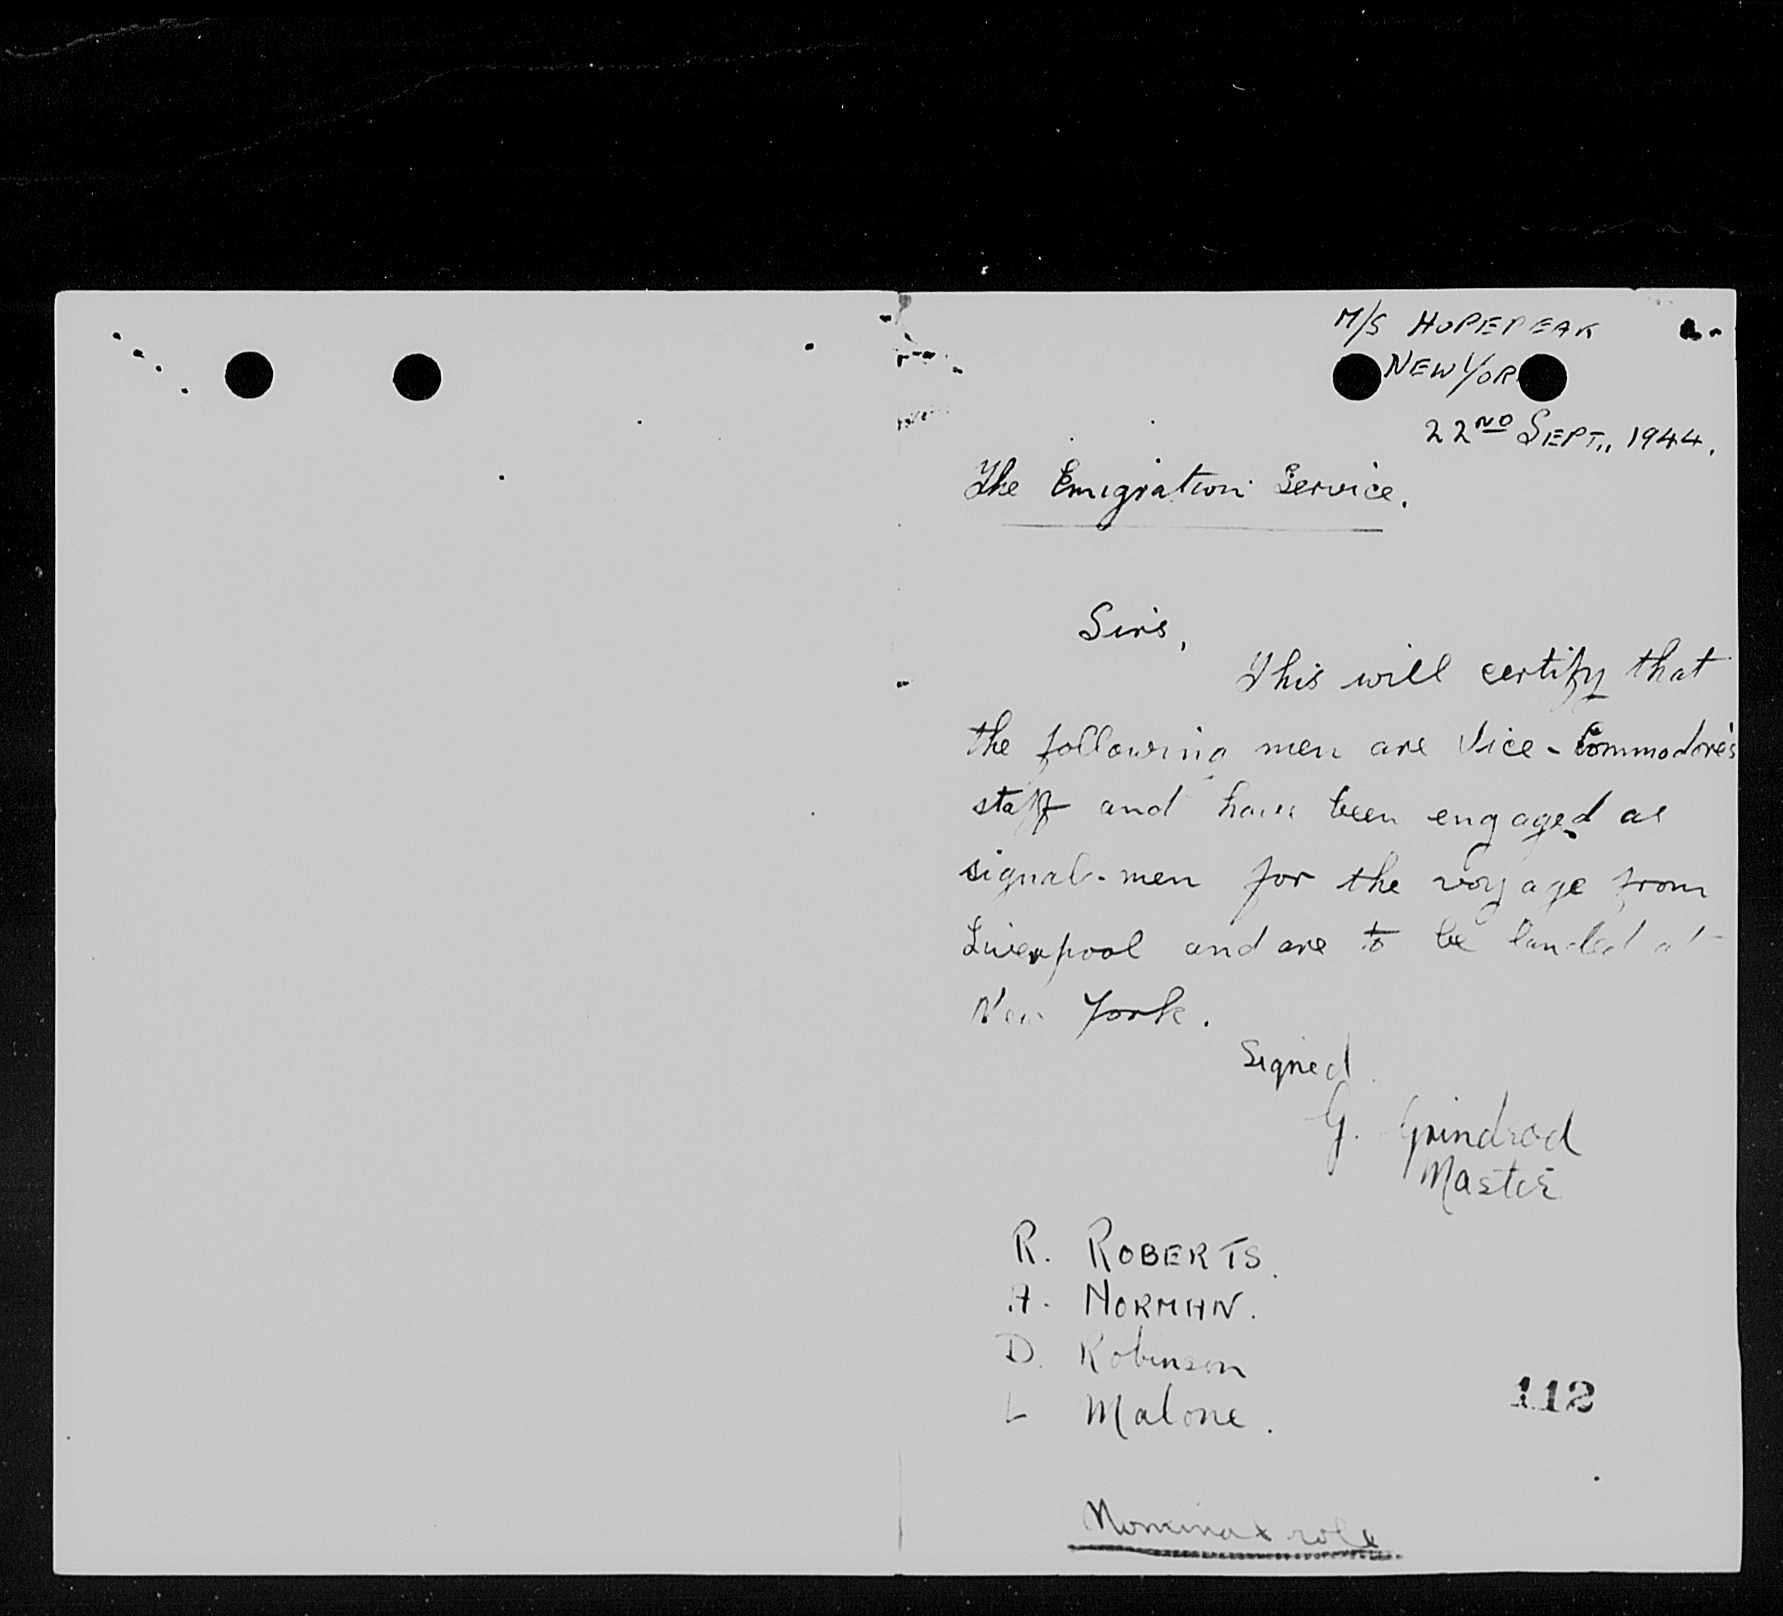 M/S HOPEPEAK
NEW YOR
22ND SEPT., 1944.
The Emigration Service.
Sirs,
This will certify that
the following men are Vice-Commodore's
staff and have been engaged as
signal-men for the voyage from
Liverpool and are to be landed at
New York.
Signed
G. Grindrod
Master
R. ROBERTS.
A. NORMAN.
D. Robinson
L Malone.
112
Nominal role